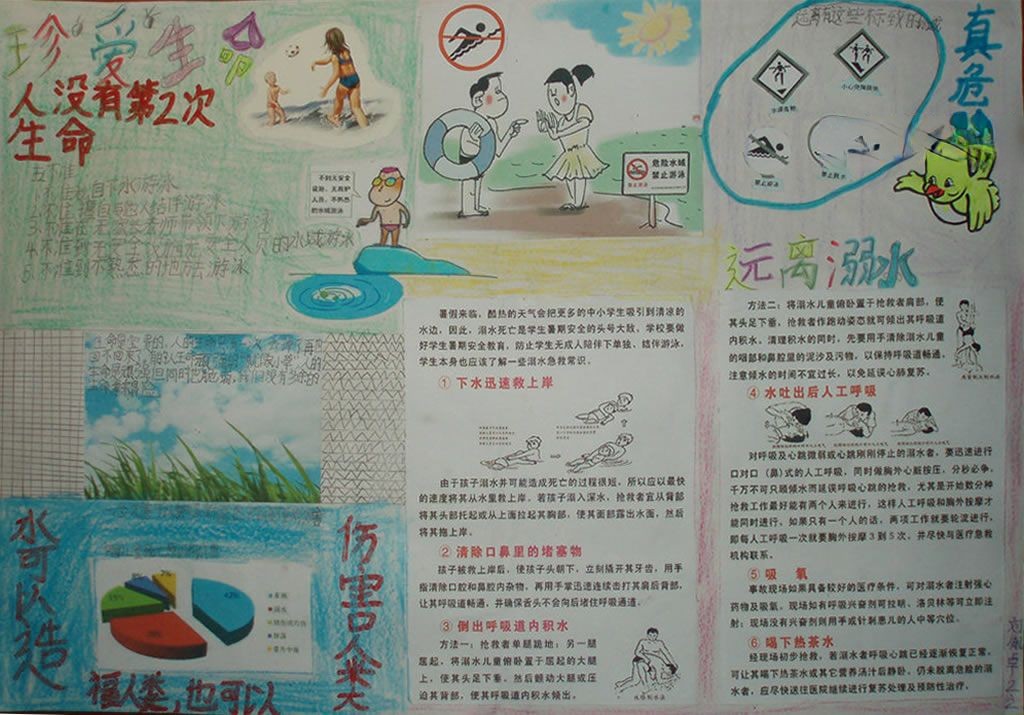 珍爱生命
人没有第2次
生命
五不准
1.不准私自下水游泳
3.不准在无家长老师带领下游泳
4.不准到无安全设施无救生人员的水域游泳
5.不准到不熟悉的地方去游泳
不到无安全
设施、无救护
人员、不熟悉
的水域游泳
危险水域
禁止游泳
远离有这些标致的地域
水深危险
小心滑降跳水
禁止游泳
禁止跳水
真危险
远离溺水
水可以造
福人类,也可以
伤害人类
42%
28%
15%
8%
2%
暑假来临,酷热的天气会把更多的中小学生吸引到清凉的
水边,因此,溺水死亡是学生暑期安全的头号大敌,学校要做
好学生暑期安全教育,防止学生无成人陪伴下单独、结伴游泳,
学生本身也应该了解一些溺水急救常识。
① 下水迅速救上岸
由于孩子溺水并可能造成死亡的过程很短,所以应以最快
的速度将其从水里救上岸。若孩子溺入深水,抢救者宜从背部
将其头部托起或从上面拉起其胸部,使其面部露出水面,然后
将其拖上岸。
② 清除口鼻里的堵塞物
孩子被救上岸后,使孩子头朝下,立刻撬开其牙齿,用手
指清除口腔和鼻腔内杂物,再用手掌迅速连续击打其肩后背部,
让其呼吸道畅通,并确保舌头不会向后堵住呼吸通道。
③ 倒出呼吸道内积水
方法一:抢救者单腿跪地;另一腿
屈起,将溺水儿童俯卧置于屈起的大腿
上,使其头足下垂。然后颤动大腿或压
迫其背部,使其呼吸道内积水倾出。
方法二:将溺水儿童俯卧置于抢救者肩部,使
其头足下垂,抢救者作跑动姿态就可倾出其呼吸道
内积水。清理积水的同时,先要用手清除溺水儿童
的咽部和鼻腔里的泥沙及污物,以保持呼吸道畅通。
注意倾水的时间不宜过长,以免延误心肺复苏。
④ 水吐出后人工呼吸
对呼吸及心跳微弱或心跳刚刚停止的溺水者,要迅速进行
口对口(鼻)式的人工呼吸,同时做胸外心脏按压,分秒必争,
千万不可只顾倾水而延误呼吸心跳的抢救,尤其是开始数分种
抢救工作最好能有两个人来进行,这样人工呼吸和胸外按摩才
能同时进行。如果只有一个人的话,两项工作就要轮流进行,
即每人工呼吸一次就要胸外按摩3到5次,并尽快与医疗急救
机构联系。
⑤ 吸 氧
事故现场如果具备较好的医疗条件,可对溺水者注射强心
药物及吸氧。现场如有呼吸兴奋剂可拉明、洛贝林等可立即注
射;现场没有兴奋剂则用手或针刺患儿的人中等穴位。
⑥ 喝下热茶水
经现场初步抢救,若溺水者呼吸心跳已经逐渐恢复正常,
可让其喝下热茶水或其它营养汤汁后静卧。仍未脱离危险的溺
水者,应尽快送往医院继续进行复苏处理及预防性治疗。